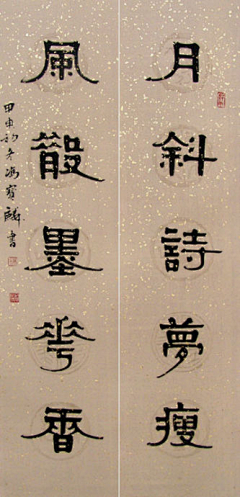 月斜詩夢瘦
風散墨花香
甲申初冬馮寶麟書